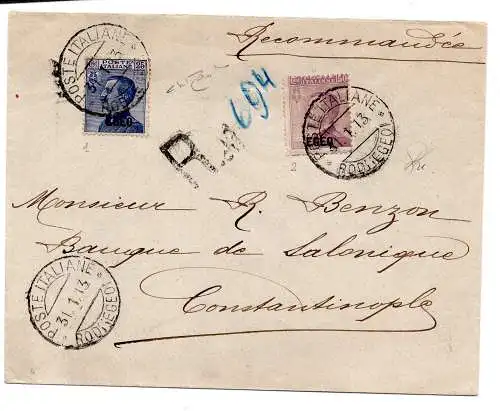 Recommandée
POSTE ITALIANE
25 POSTE ITALIANE 25
EGEO
694
R
EGEO
POSTE ITALIANE
31.1.13
RODI (EGEO)
1
2
Monsieur R. Benzon
Banque de Salonique
Constantinople
POSTE ITALIANE
31.1.13
RODI (EGEO)